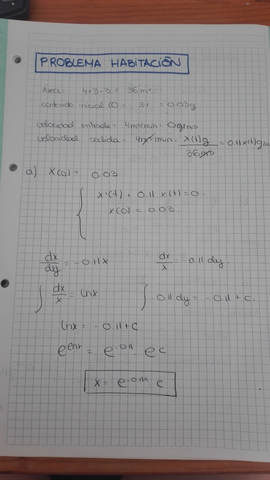 PROBLEMA HABITACIÓN
Area: 4x3x3 = 36m³
contenido inicial CO = 3% = 0.03g
velocidad entrada = 4m³/min · 0g/m³
velocidad salida = 4m³/min · x(t)g/36m³ = 0.11x(t)g
a) x(0) = 0.03
x'(t) + 0.11 x(t) = 0
x(0) = 0.03
dx/dy = -0.11x dx/x = -0.11dy
∫ dx/x = lnx ∫ -0.11dy = -0.11+C
lnx = -0.11+C
e^lnx = e^-0.11 e^C
x = e^-0.11x C